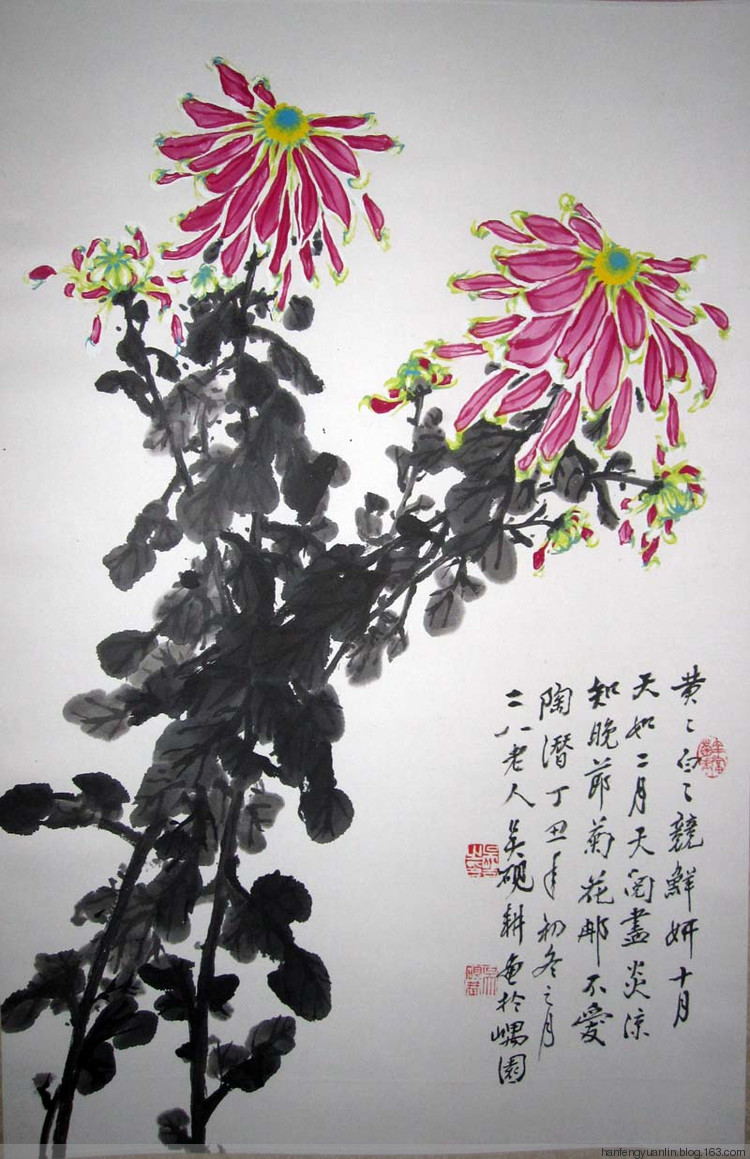 黄〻白〻競鮮妍十月
天如二月天閱盡炎涼
知晚節菊花那不愛
陶潛丁丑年初冬之月
二八老人吴硯耕畫於嵎園
hanfengyuanlin.blog.163.com